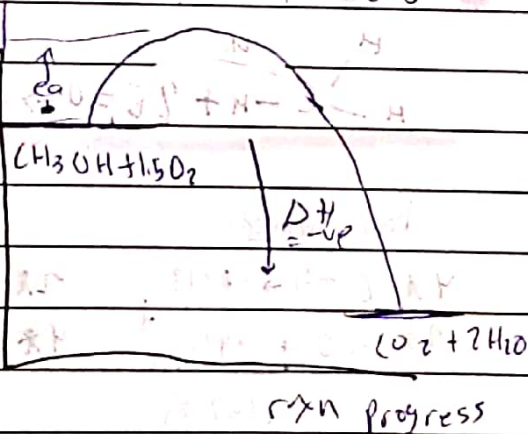 Ea
CH3OH+1.5O2
ΔH
= -ve
CO2 + 2H2O
rxn progress